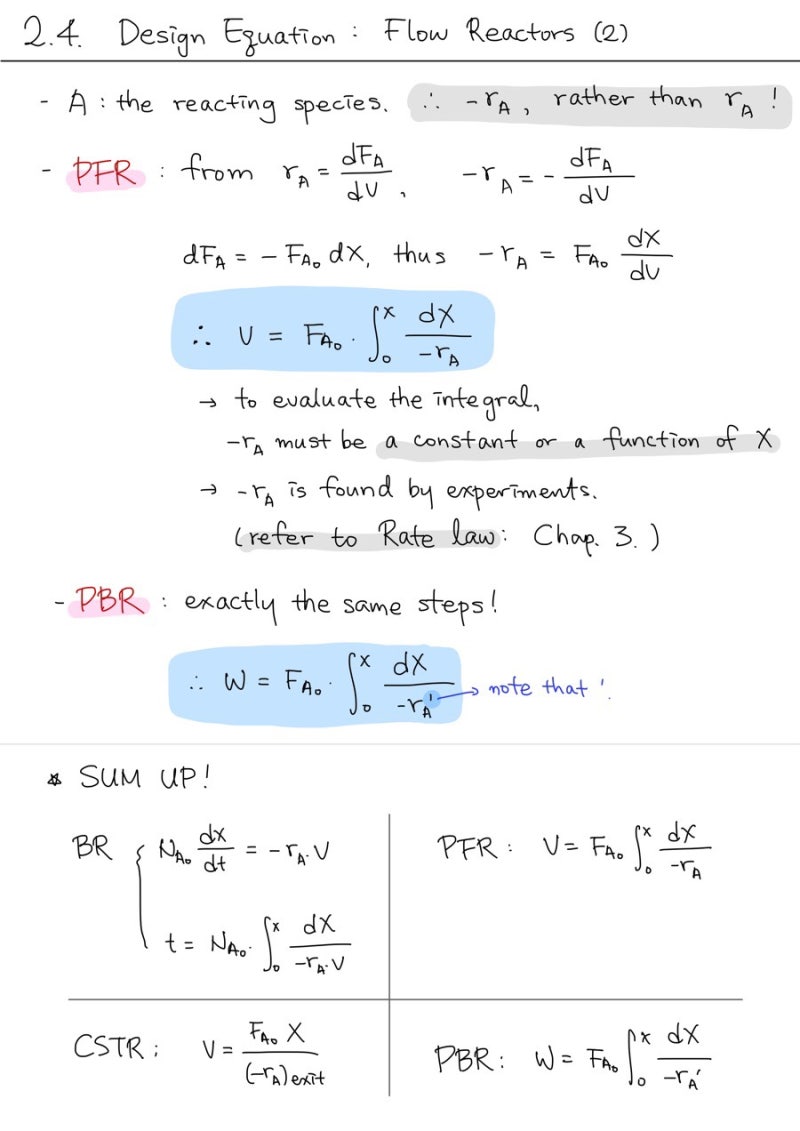 2.4. Design Equation : Flow Reactors (2)
- A : the reacting species. ∴ -r_A, rather than r_A !
- PFR : from r_A = dF_A/dV, -r_A = - dF_A/dV
dF_A = - F_A₀ dX, thus -r_A = F_A₀ dX/dV
∴ V = F_A₀ · ∫₀ˣ dX/-r_A
→ to evaluate the integral,
-r_A must be a constant or a function of X
→ -r_A is found by experiments.
(refer to Rate law: Chap. 3.)
- PBR : exactly the same steps!
∴ W = F_A₀ · ∫₀ˣ dX/-r_A' → note that '.
☆ SUM UP!
BR { N_A₀ dX/dt = -r_A·V
t = N_A₀· ∫₀ˣ dX/-r_A·V
PFR : V = F_A₀ ∫₀ˣ dX/-r_A
CSTR : V = F_A₀ X/(-r_A)exit
PBR : W = F_A₀ ∫₀ˣ dX/-r_A'